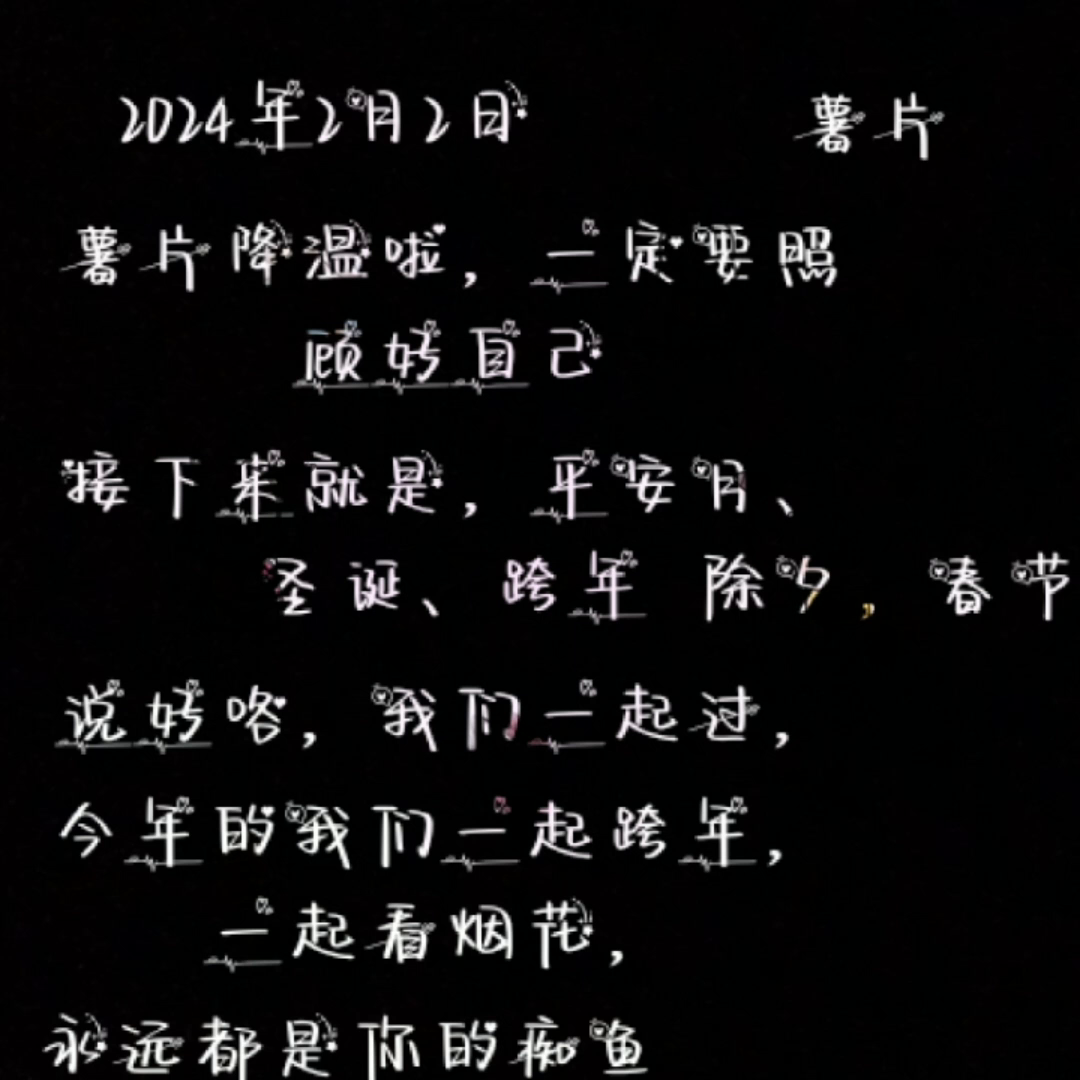 2024年2月2日 薯片
薯片降温啦，一定要照
顾好自己
接下来就是，平安月、
圣诞、跨年 除夕，春节
说好咯，我们一起过，
今年的我们一起跨年，
一起看烟花，
永远都是你的痴鱼